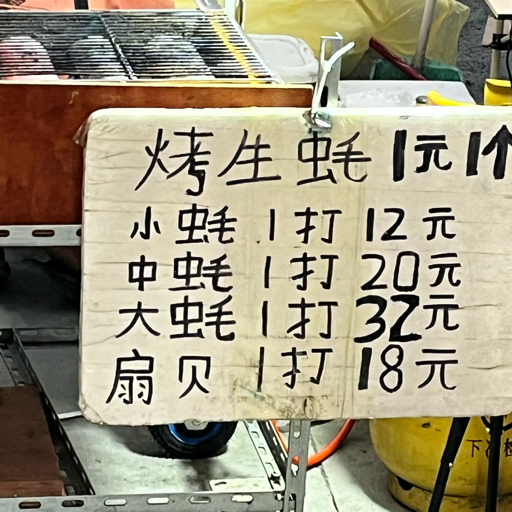 烤生蚝 1元1个
小蚝 1打 12元
中蚝 1打 20元
大蚝 1打 32元
扇贝 1打 18元